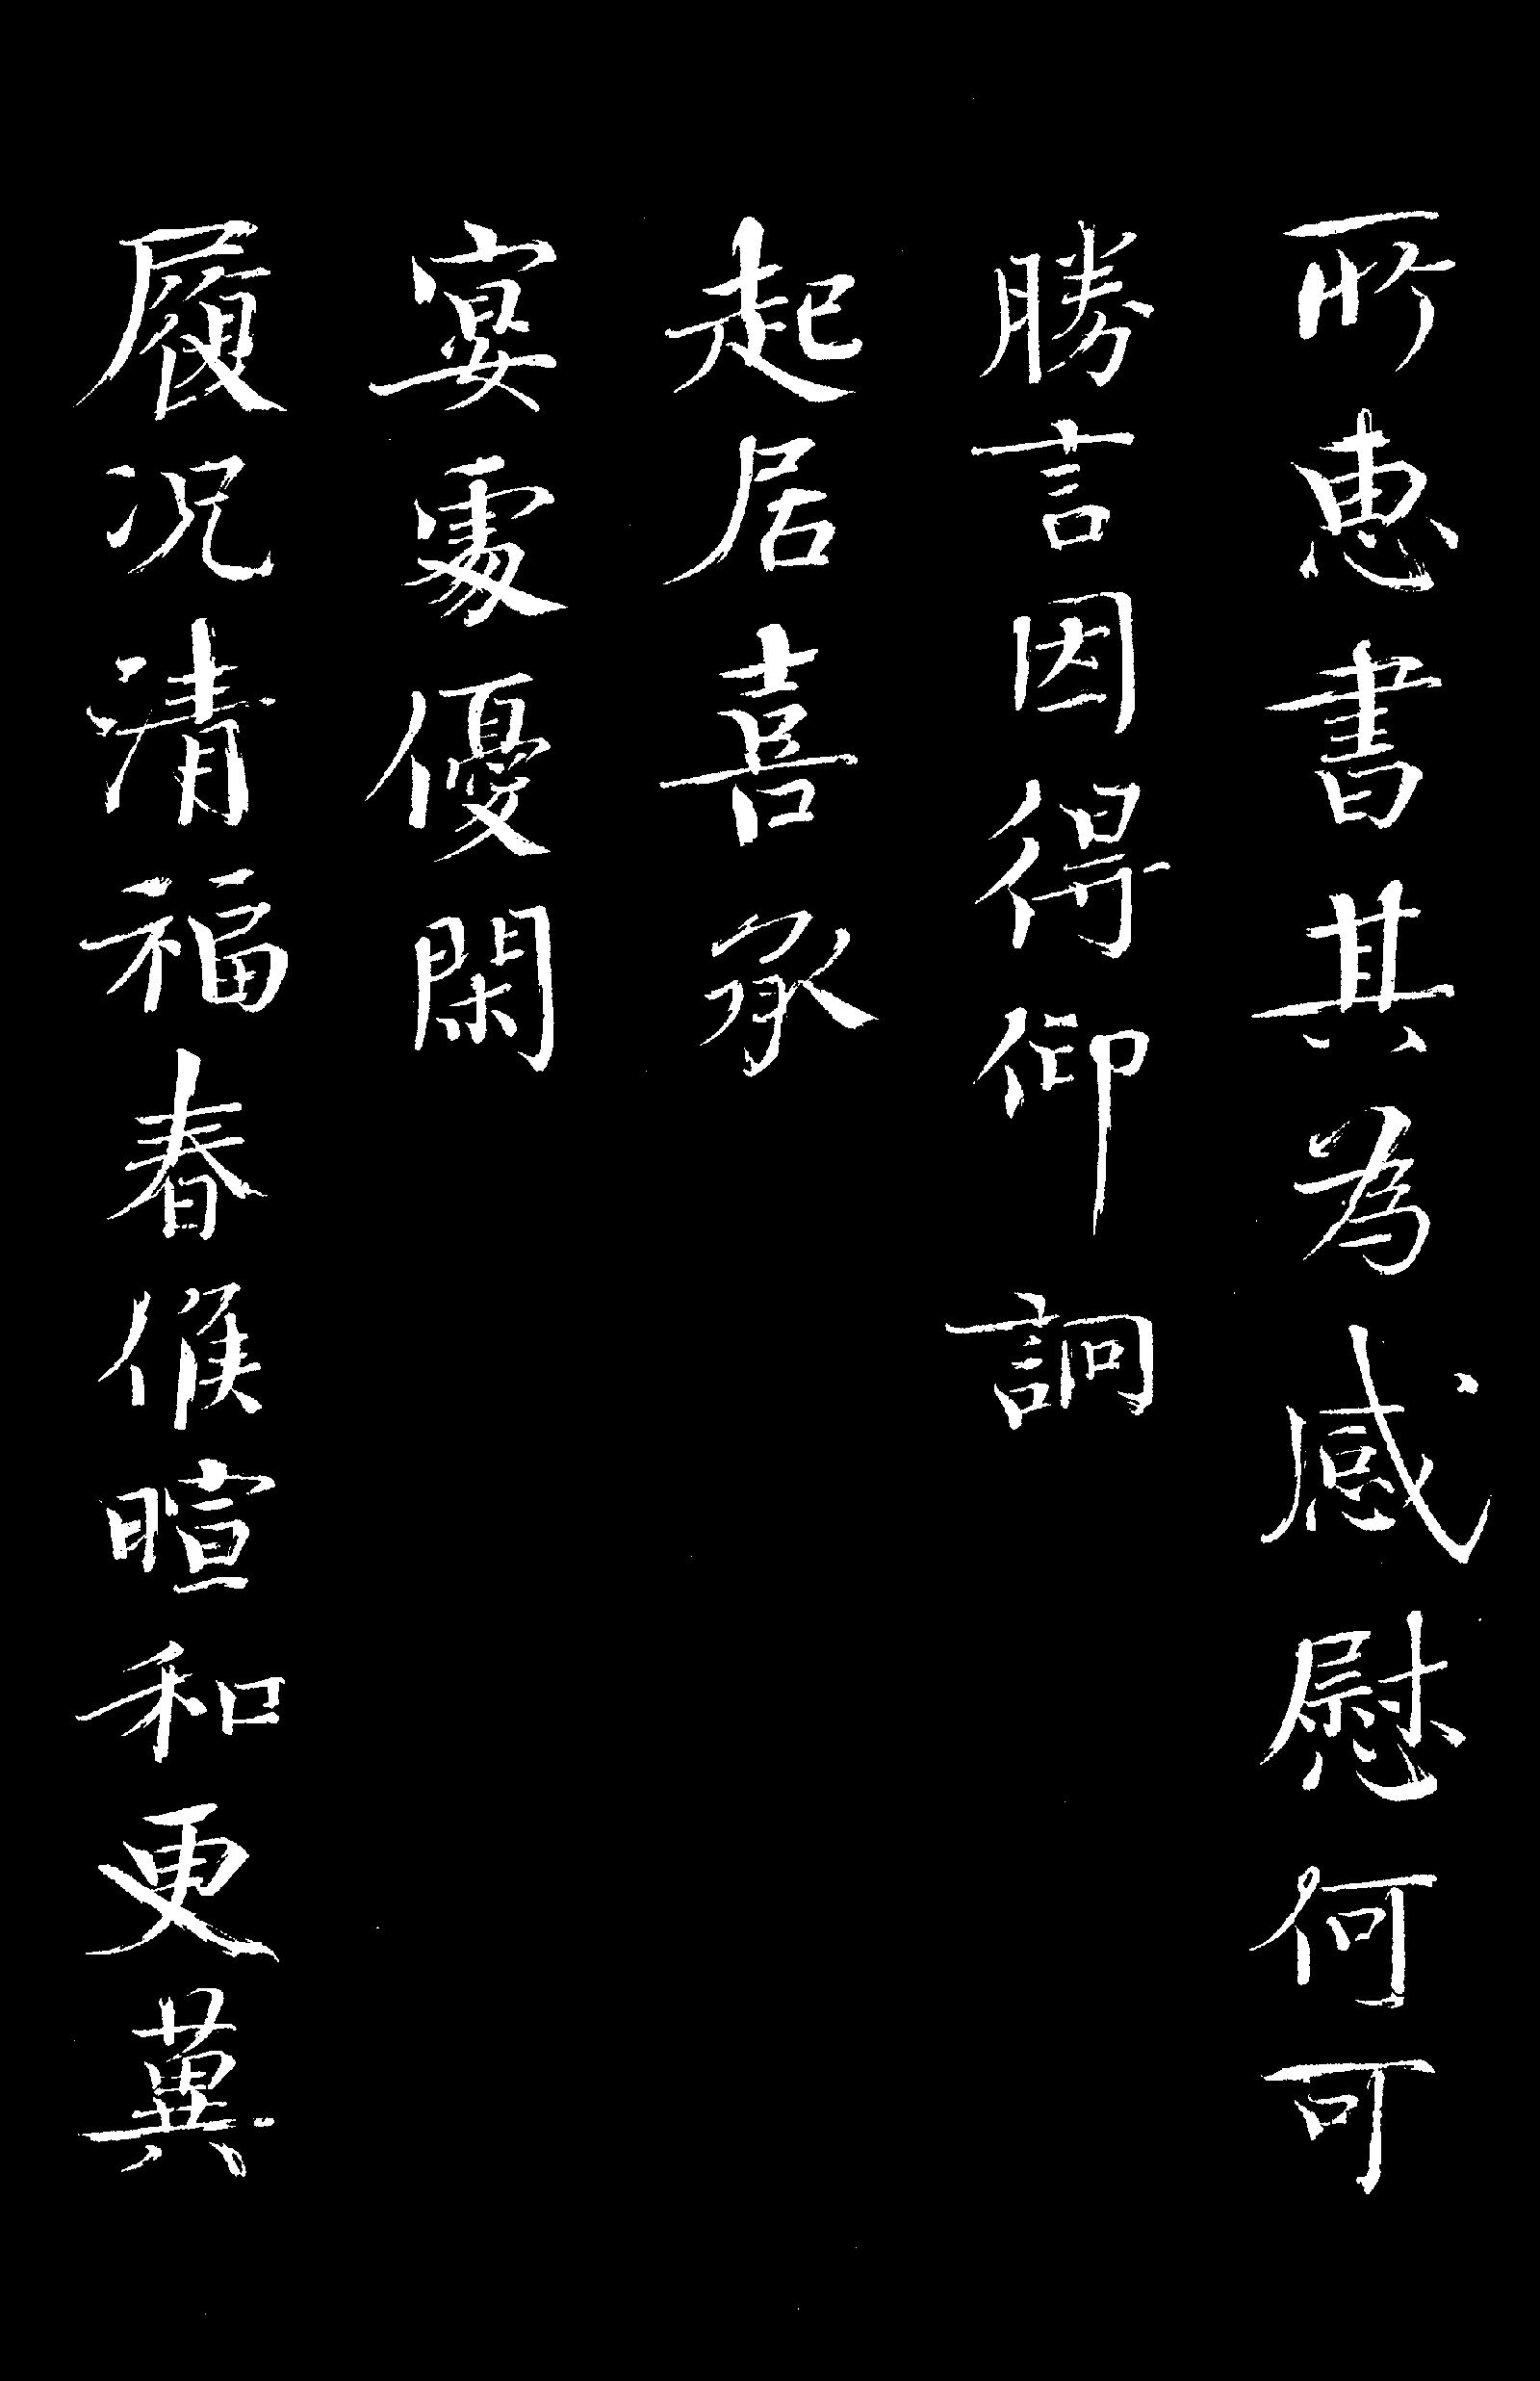 所惠書其為感慰何可
勝言因得仰詗
起居喜承
宴處優閑
履況清福春候暄和更冀